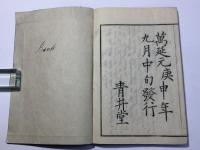 萬延元庚申年
九月中旬發行
青井堂